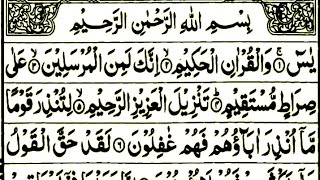 بِسْمِ اللهِ الرَّحْمٰنِ الرَّحِيْمِ
يٰسٓ ۝١ وَالْقُرْاٰنِ الْحَكِيْمِ ۝٢ اِنَّكَ لَمِنَ الْمُرْسَلِيْنَ ۝٣ عَلٰى
صِرَاطٍ مُّسْتَقِيْمٍ ۝٤ تَنْزِيْلَ الْعَزِيْزِ الرَّحِيْمِ ۝٥ لِتُنْذِرَ قَوْمًا
مَّاۤ اُنْذِرَ اٰبَآؤُهُمْ فَهُمْ غٰفِلُوْنَ ۝٦ لَقَدْ حَقَّ الْقَوْلُ